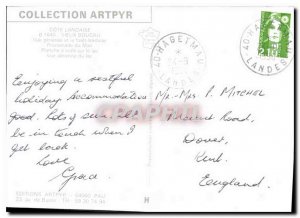 COLLECTION ARTPYR
CÔTE LANDAISE
VIEUX BOUCAU
40 HAGETMAU
LANDES
40 HAGETMAU
LANDES
2,10
Enjoying a restful
holiday. Accommodation
good. Lots of sun. Will
be in touch when I
get back.
Love
Grace
Mr. Mrs P. MITCHEL
Road,
Dover,
Kent.
England.
EDITIONS ARTPYR - 64000 PAU